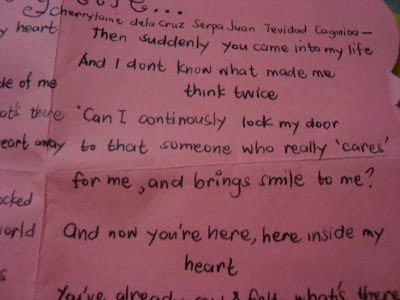 Cherrylaine dela Cruz Serpa Juan Tevidad Caguioa —
y heart
Then suddenly you came into my life
And I dont know what made me
think twice
de of me
at's there 'Can I continously lock my door
eart away to that someone who really 'cares'
for me, and brings smile to me?
ocked
world And now you're here, here inside my
heart
s
You've already saw & felt what's there